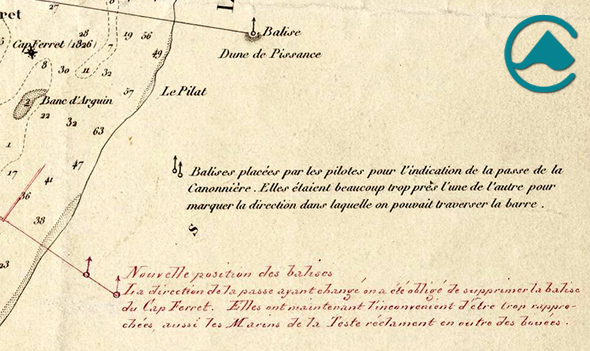 rret
Balise
Cap Ferret (1826)
Dune de Pissance
Le Pilat
Banc d'Arguin
27
28
19
56
49
8
30
11
32
7
37
2
22
32
63
1
47
17
41
36
38
23
Balises placées par les pilotes pour l'indication de la passe de la
Canonnière. Elles étaient beaucoup trop près l'une de l'autre pour
marquer la direction dans laquelle on pouvait traverser la barre.
S
Nouvelle position des balises
La direction de la passe ayant changé on a été obligé de supprimer la balise
du Cap Ferret. Elles ont maintenant l'inconvenient d'être trop rappro-
chées, aussi les Marins de la Teste réclament en outre des bouées.